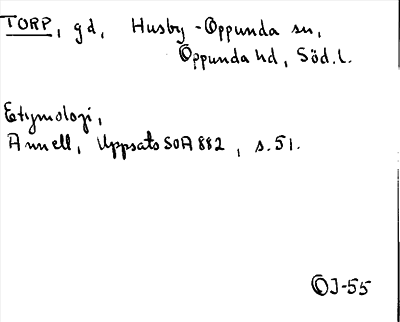 TORP, gd, Husby-Oppunda sn,
Oppunda hd, Söd.l.
Etymologi,
Annell, Uppsats SOA 882, s.51.
OJ-55